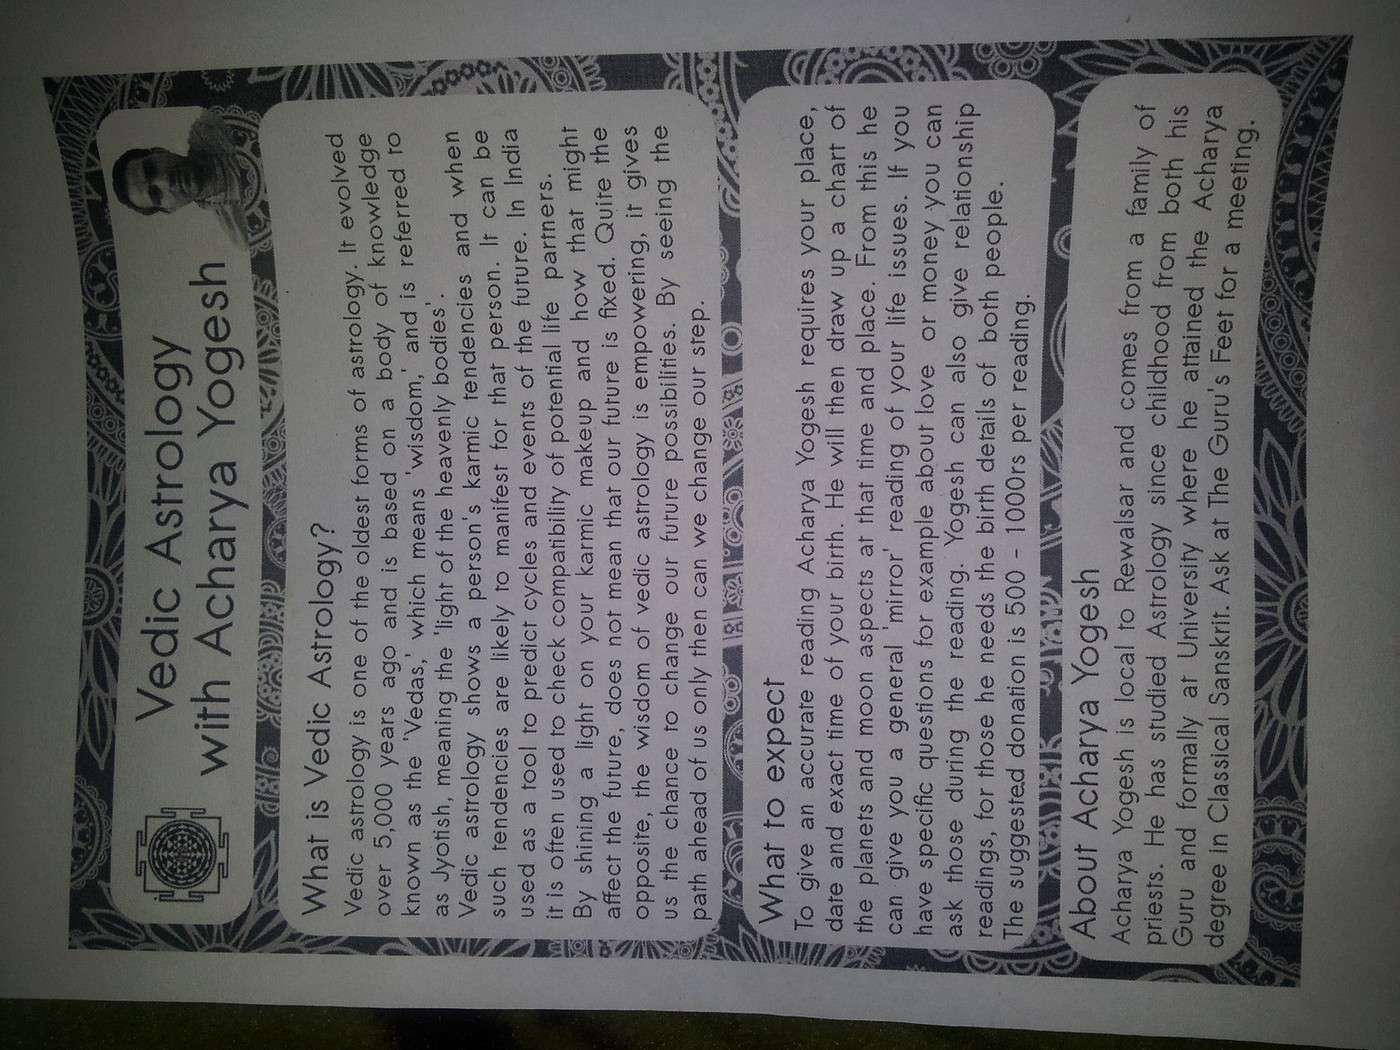 Vedic Astrology
with Acharya Yogesh
What is Vedic Astrology?
Vedic astrology is one of the oldest forms of astrology. It evolved
over 5,000 years ago and is based on a body of knowledge
known as the 'Vedas,' which means 'wisdom,' and is referred to
as Jyotish, meaning the 'light of the heavenly bodies'.
Vedic astrology shows a person's karmic tendencies and when
such tendencies are likely to manifest for that person. It can be
used as a tool to predict cycles and events of the future. In India
it is often used to check compatibility of potential life partners.
By shining a light on your karmic makeup and how that might
affect the future, does not mean that our future is fixed. Quite the
opposite, the wisdom of vedic astrology is empowering, it gives
us the chance to change our future possibilities. By seeing the
path ahead of us only then can we change our step.
What to expect
To give an accurate reading Acharya Yogesh requires your place,
date and exact time of your birth. He will then draw up a chart of
the planets and moon aspects at that time and place. From this he
can give you a general 'mirror' reading of your life issues. If you
have specific questions for example about love or money you can
ask those during the reading. Yogesh can also give relationship
readings, for those he needs the birth details of both people.
The suggested donation is 500 - 1000rs per reading.
About Acharya Yogesh
Acharya Yogesh is local to Rewalsar and comes from a family of
priests. He has studied Astrology since childhood from both his
Guru and formally at University where he attained the Acharya
degree in Classical Sanskrit. Ask at The Guru's Feet for a meeting.